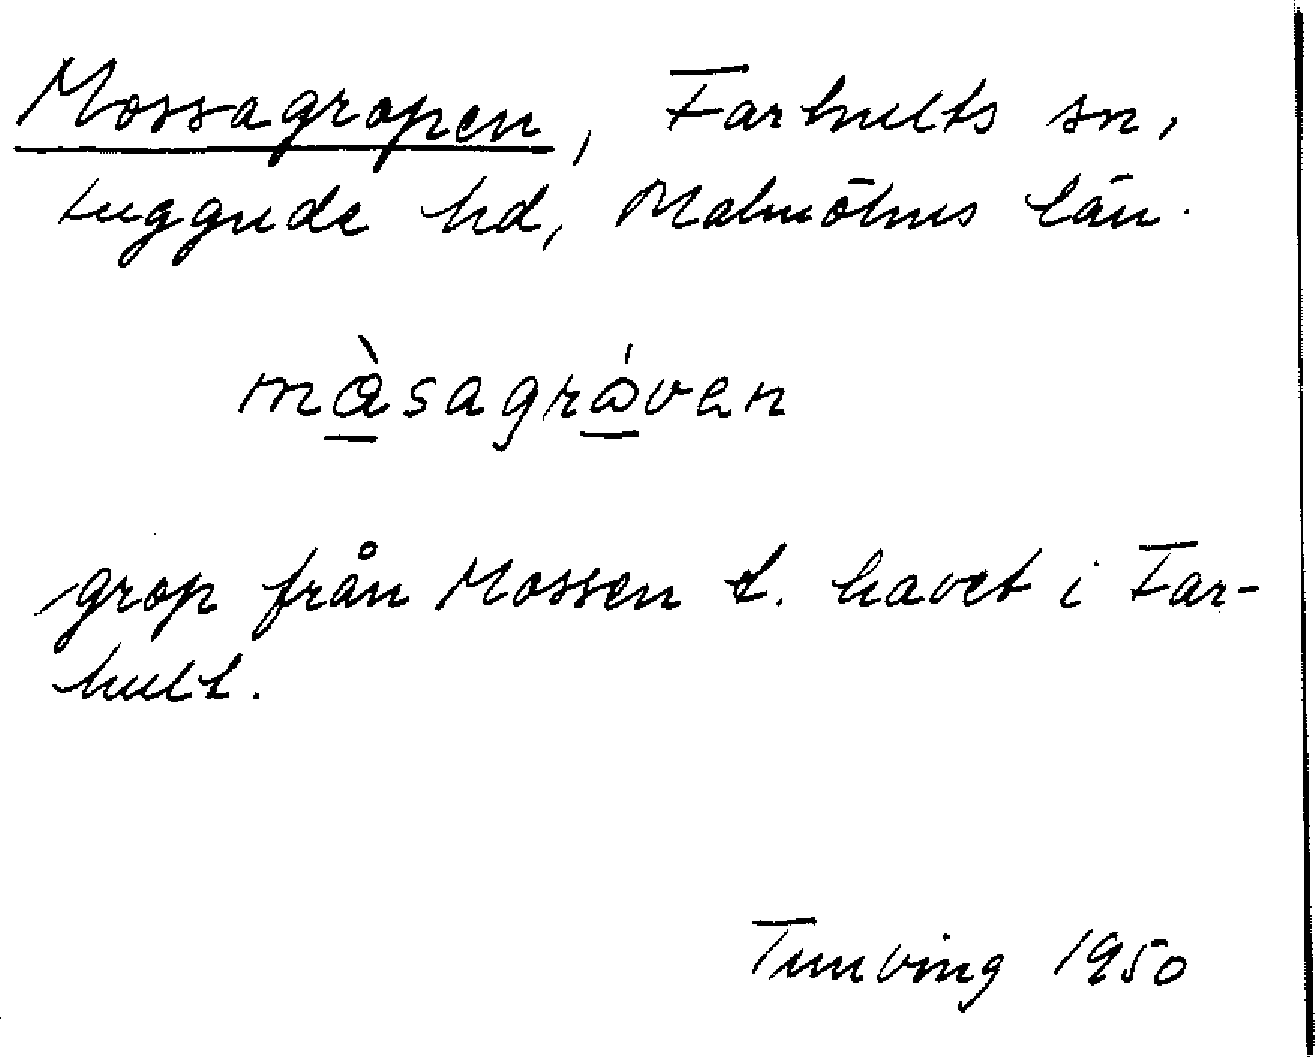 Mossagropen, Farhults sn,
Luggude hd, Malmöhus län.
må̀sagrǻven
grop från Mossen t. havet i Far-
hult.
Tunving 1950